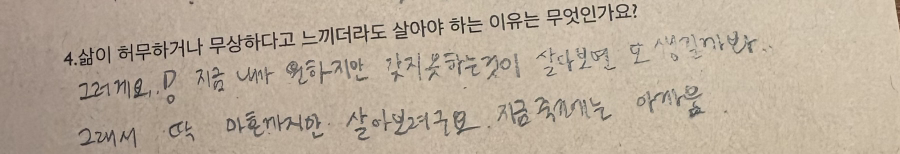 4.삶이 허무하거나 무상하다고 느끼더라도 살아야 하는 이유는 무엇인가요?
그러게요.. 음 지금 내가 원하지만 갖지못하는것이 살다보면 또 생길까봐..
그래서 딱 마흔까지만 살아보려구요. 지금죽기에는 아까움.